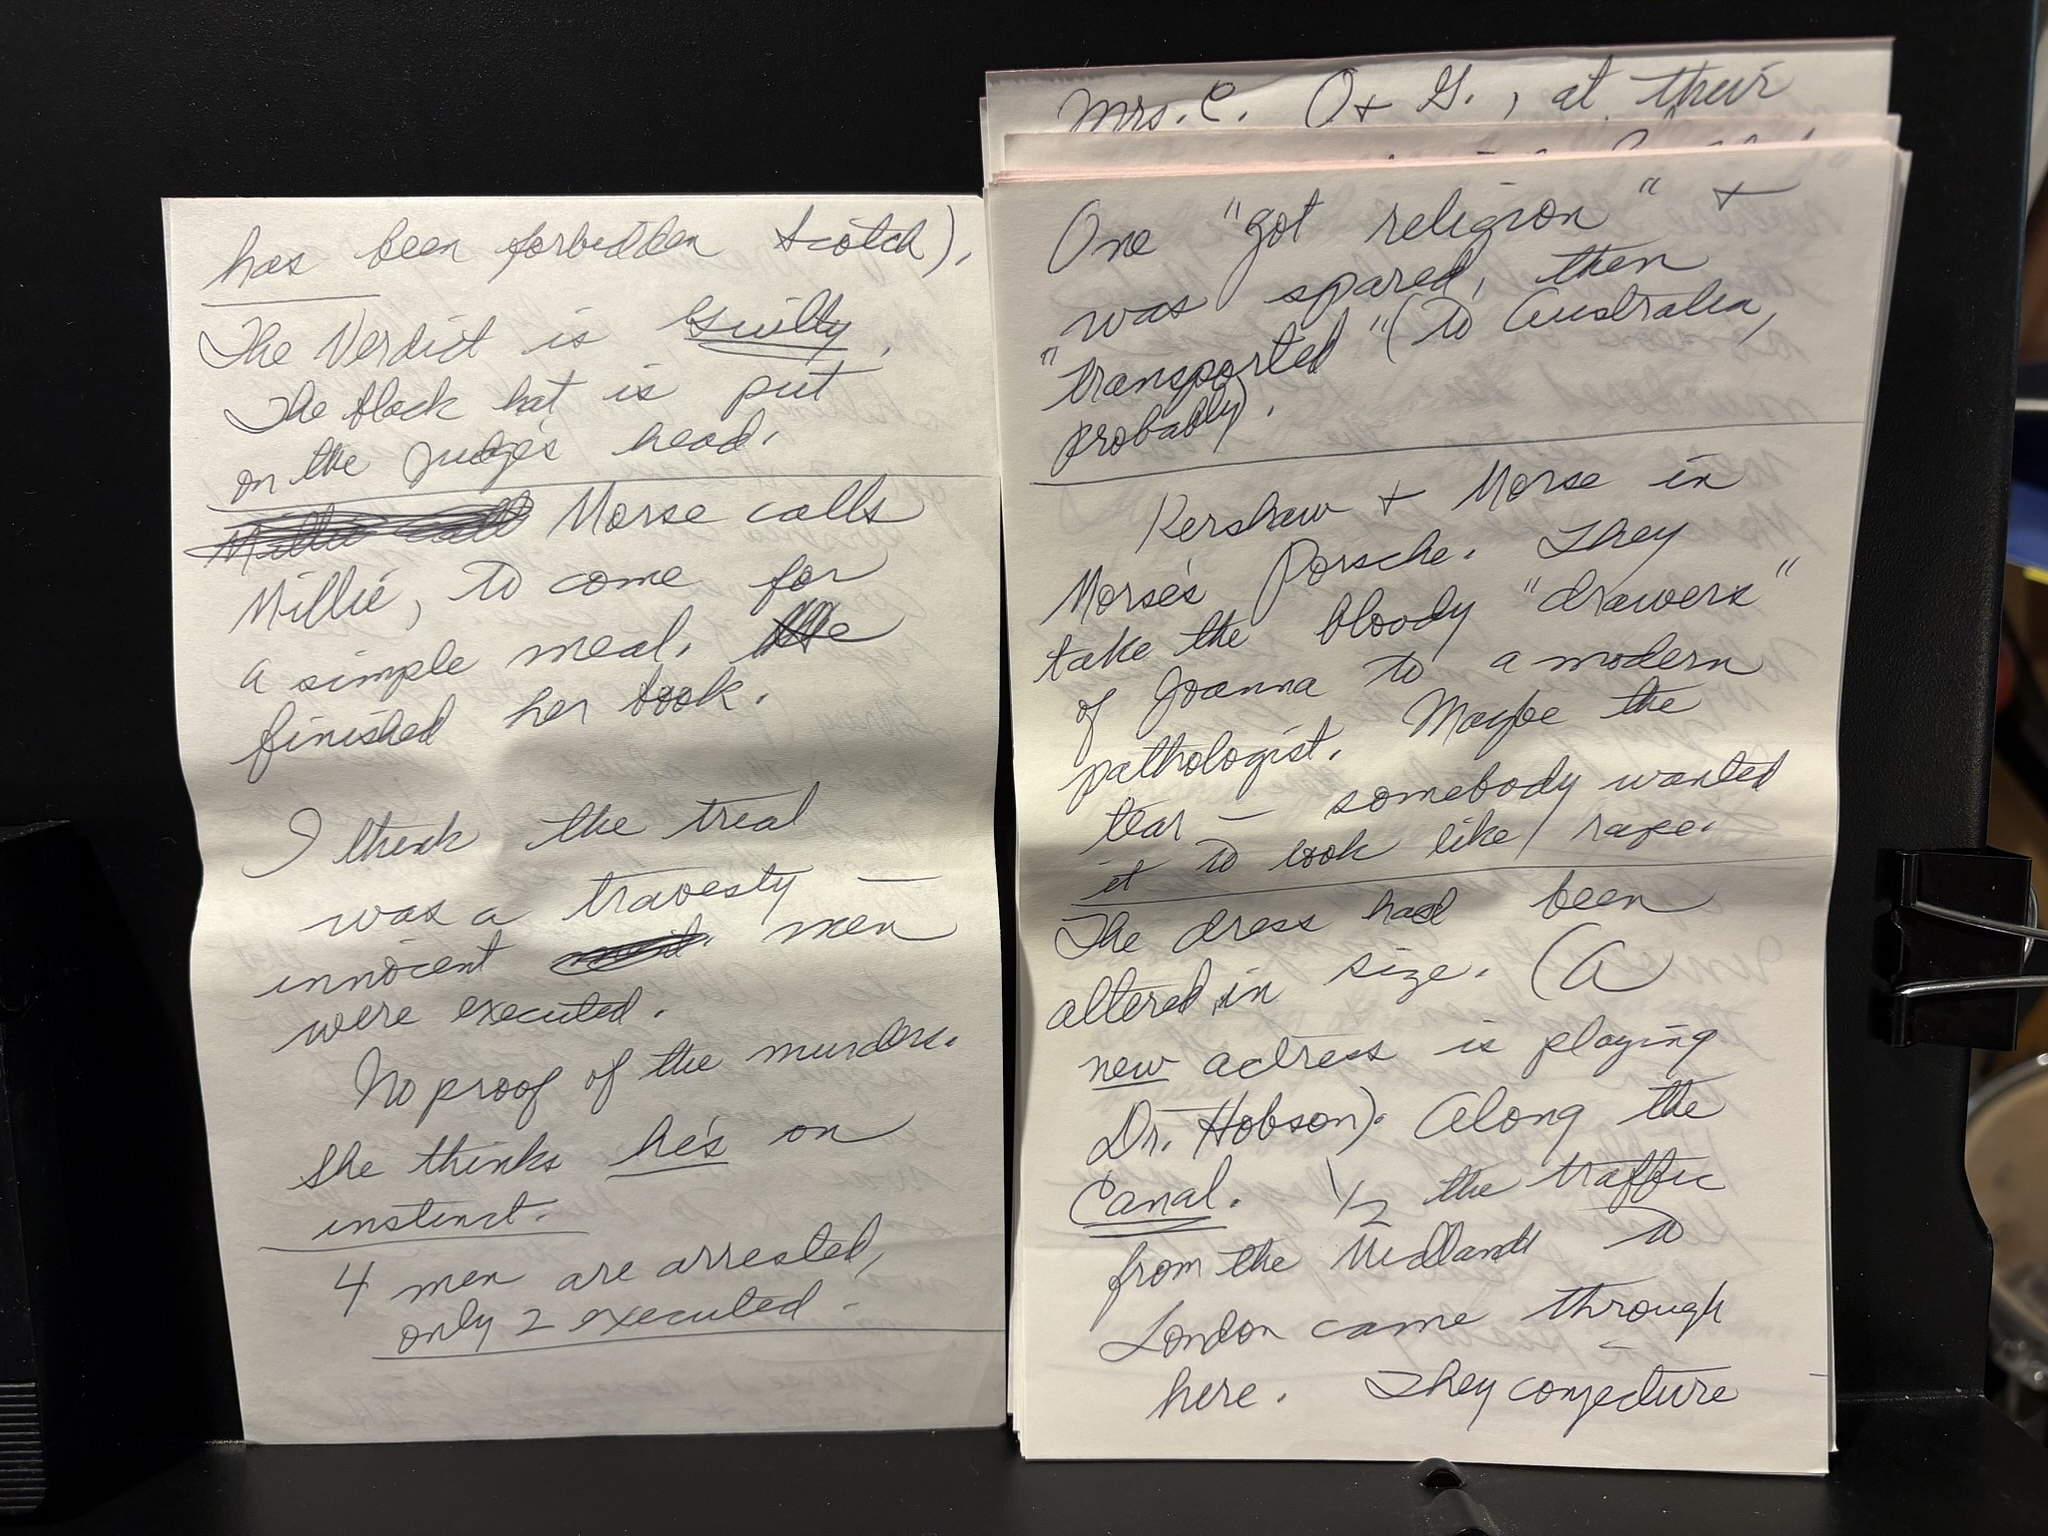 has been forbidden Scotch).
The Verdict is Guilty.
The black hat is put
on the judge's head.
Morse calls
Millie, to come for
a simple meal. He
finished her book.
I think the trial
was a travesty —
innocent men
were executed.
No proof of the murders.
She thinks he's on
instinct.
4 men are arrested,
only 2 executed.
Mrs. C. O + G., at their
One "got religion" +
was spared, then
"transported" (to Australia,
probably).
Kershaw + Morse in
Morse's Porsche. They
take the bloody "drawers"
of Joanna to a modern
pathologist. Maybe the
tear — somebody wanted
it to look like rape.
The dress had been
altered in size. (A
new actress is playing
Dr. Hobson). Along the
Canal. 1/2 the traffic
from the Midlands to
London came through
here. They conjecture